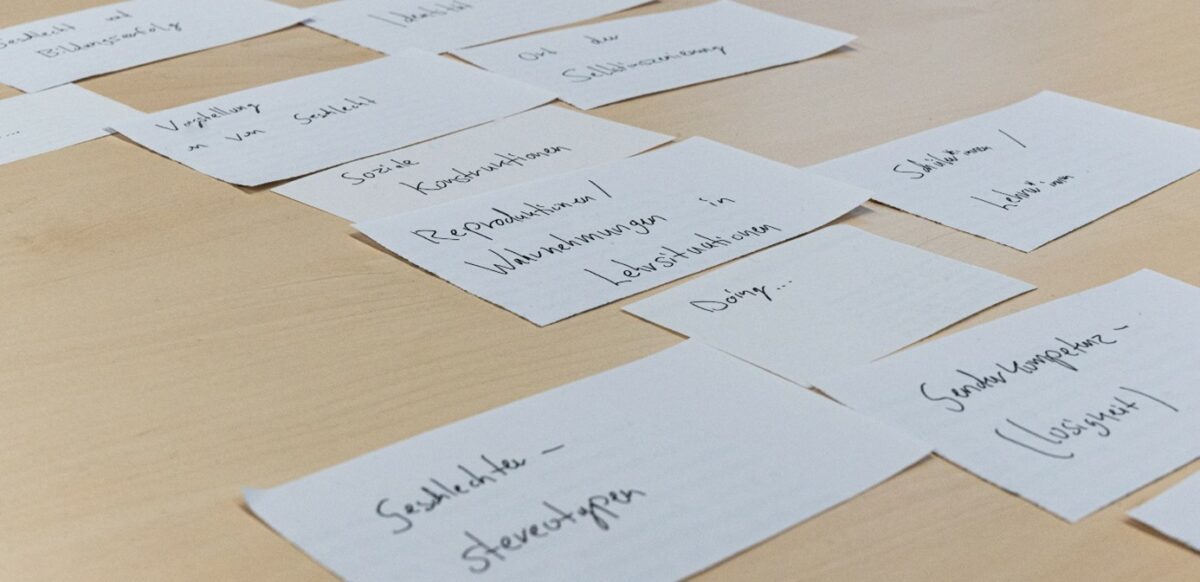 Geschlecht und
Bildungserfolg
Identität
Ort der
Selbstinszenierung
...
Vorstellung
en von Geschlecht
Soziale
Konstruktionen
Reproduktionen /
Wahrnehmungen in
Lehrsituationen
Schüler*innen /
Lehrer*innen
Doing...
Genderkompetenz-
(losigkeit)
Geschlechter-
stereotypen